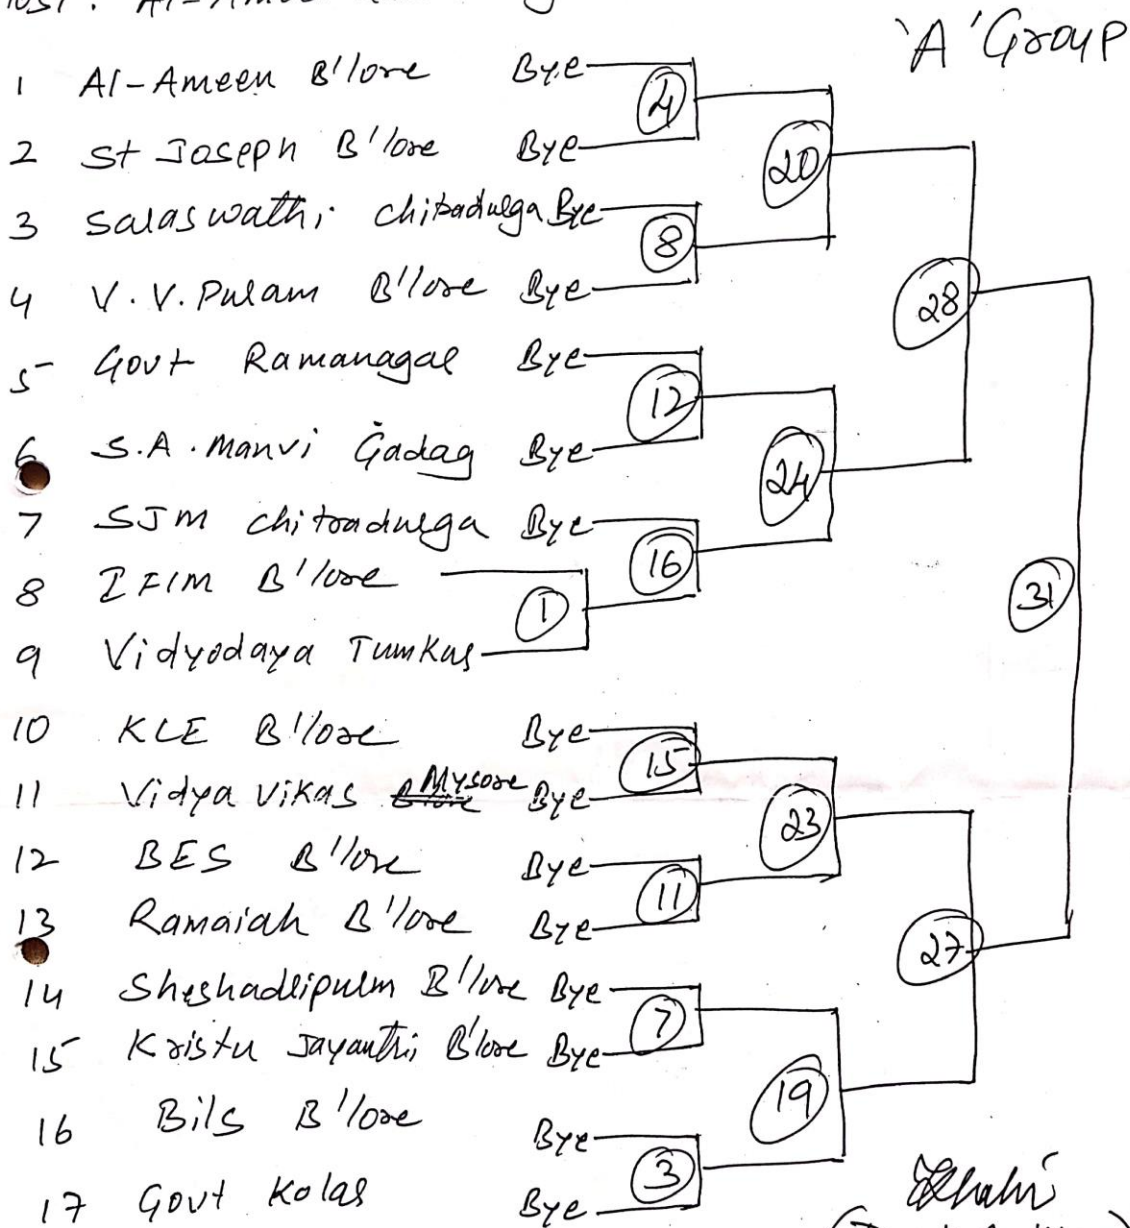 'A' Group
1 Al-Ameen B'lore Bye
4
2 St Joseph B'lore Bye
20
3 Saraswathi Chitradurga Bye
8
4 V.V.Puram B'lore Bye
28
5 Govt Ramanagar Bye
12
6 S.A.Manvi Gadag Bye
24
7 SJM Chitradurga Bye
16
8 IFIM B'lore
1
31
9 Vidyodaya Tumkur
10 KLE B'lore Bye
15
11 Vidya Vikas Mysore Bye
23
12 BES B'lore Bye
11
13 Ramaiah B'lore Bye
27
14 Sheshadripurm B'lore Bye
7
15 Kristu Jayanthi B'lore Bye
19
16 Bils B'lore Bye
3
17 Govt Kolar Bye